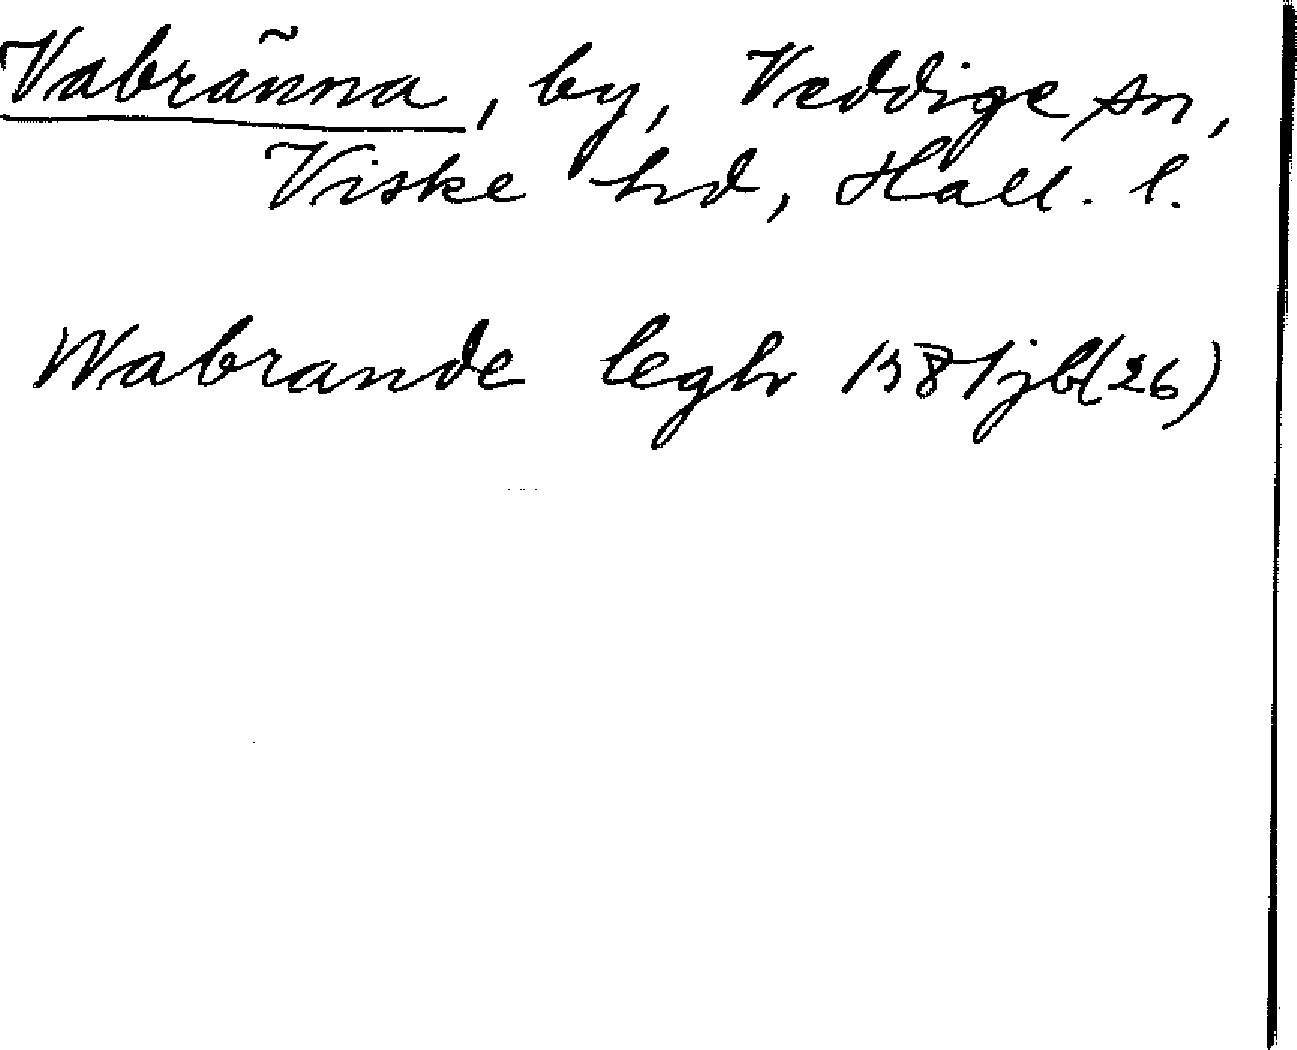 Vabränna, by, Veddige sn,
Viske hd, Hall. l.
Wabrande legh 1581 jb (26)